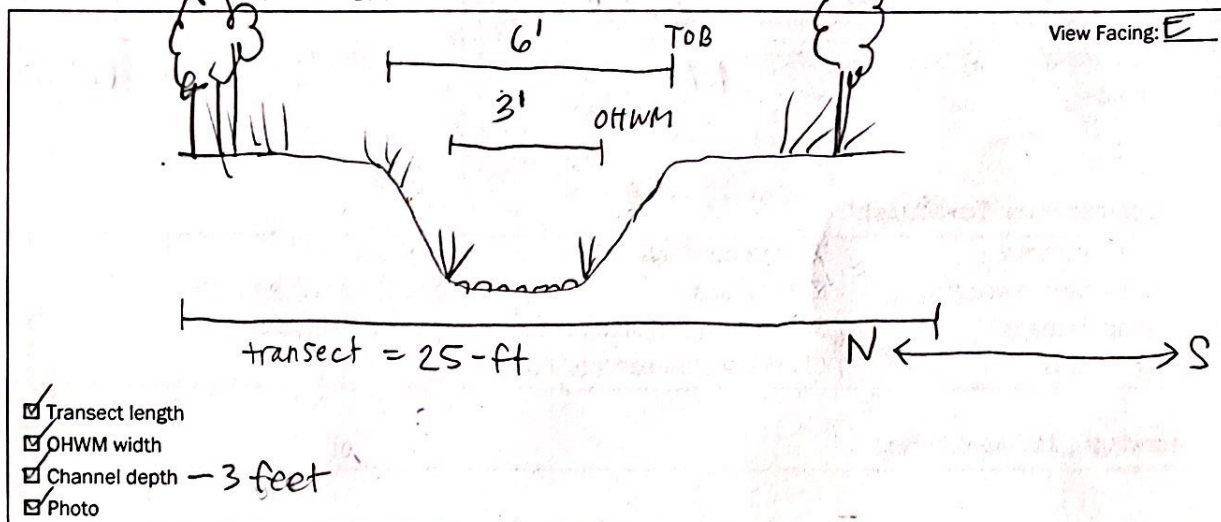 6' TOB
View Facing: E
3' OHWM
transect = 25-ft
N S
Transect length
OHWM width
Channel depth - 3 feet
Photo